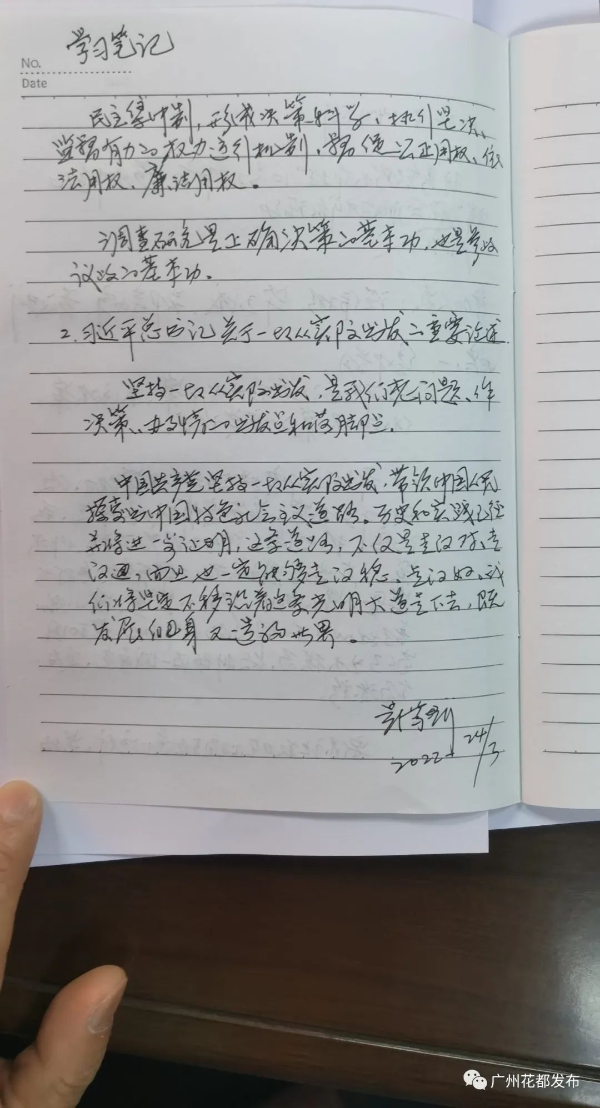 No. 学习笔记
Date
民主集中制，形成决策科学、执行坚决、
监督有力的权力运行机制，督促公正用权、依
法用权、廉洁用权。
调查研究是正确决策的基本功，也是参政
议政的基本功。
2. 习近平总书记关于一切从实际出发的重要论述
坚持一切从实际出发，是我们想问题、作
决策、办事情的出发点和落脚点。
中国共产党坚持一切从实际出发，带领中国人民
探索出中国特色社会主义道路。历史和实践已经
并将进一步证明，这条道路，不仅走得对、走
得通，而且也一定能够走得稳、走得好。我
们将坚定不移沿着这条光明大道走下去，既
发展自身又造福世界。
2022 24/3
广州花都发布